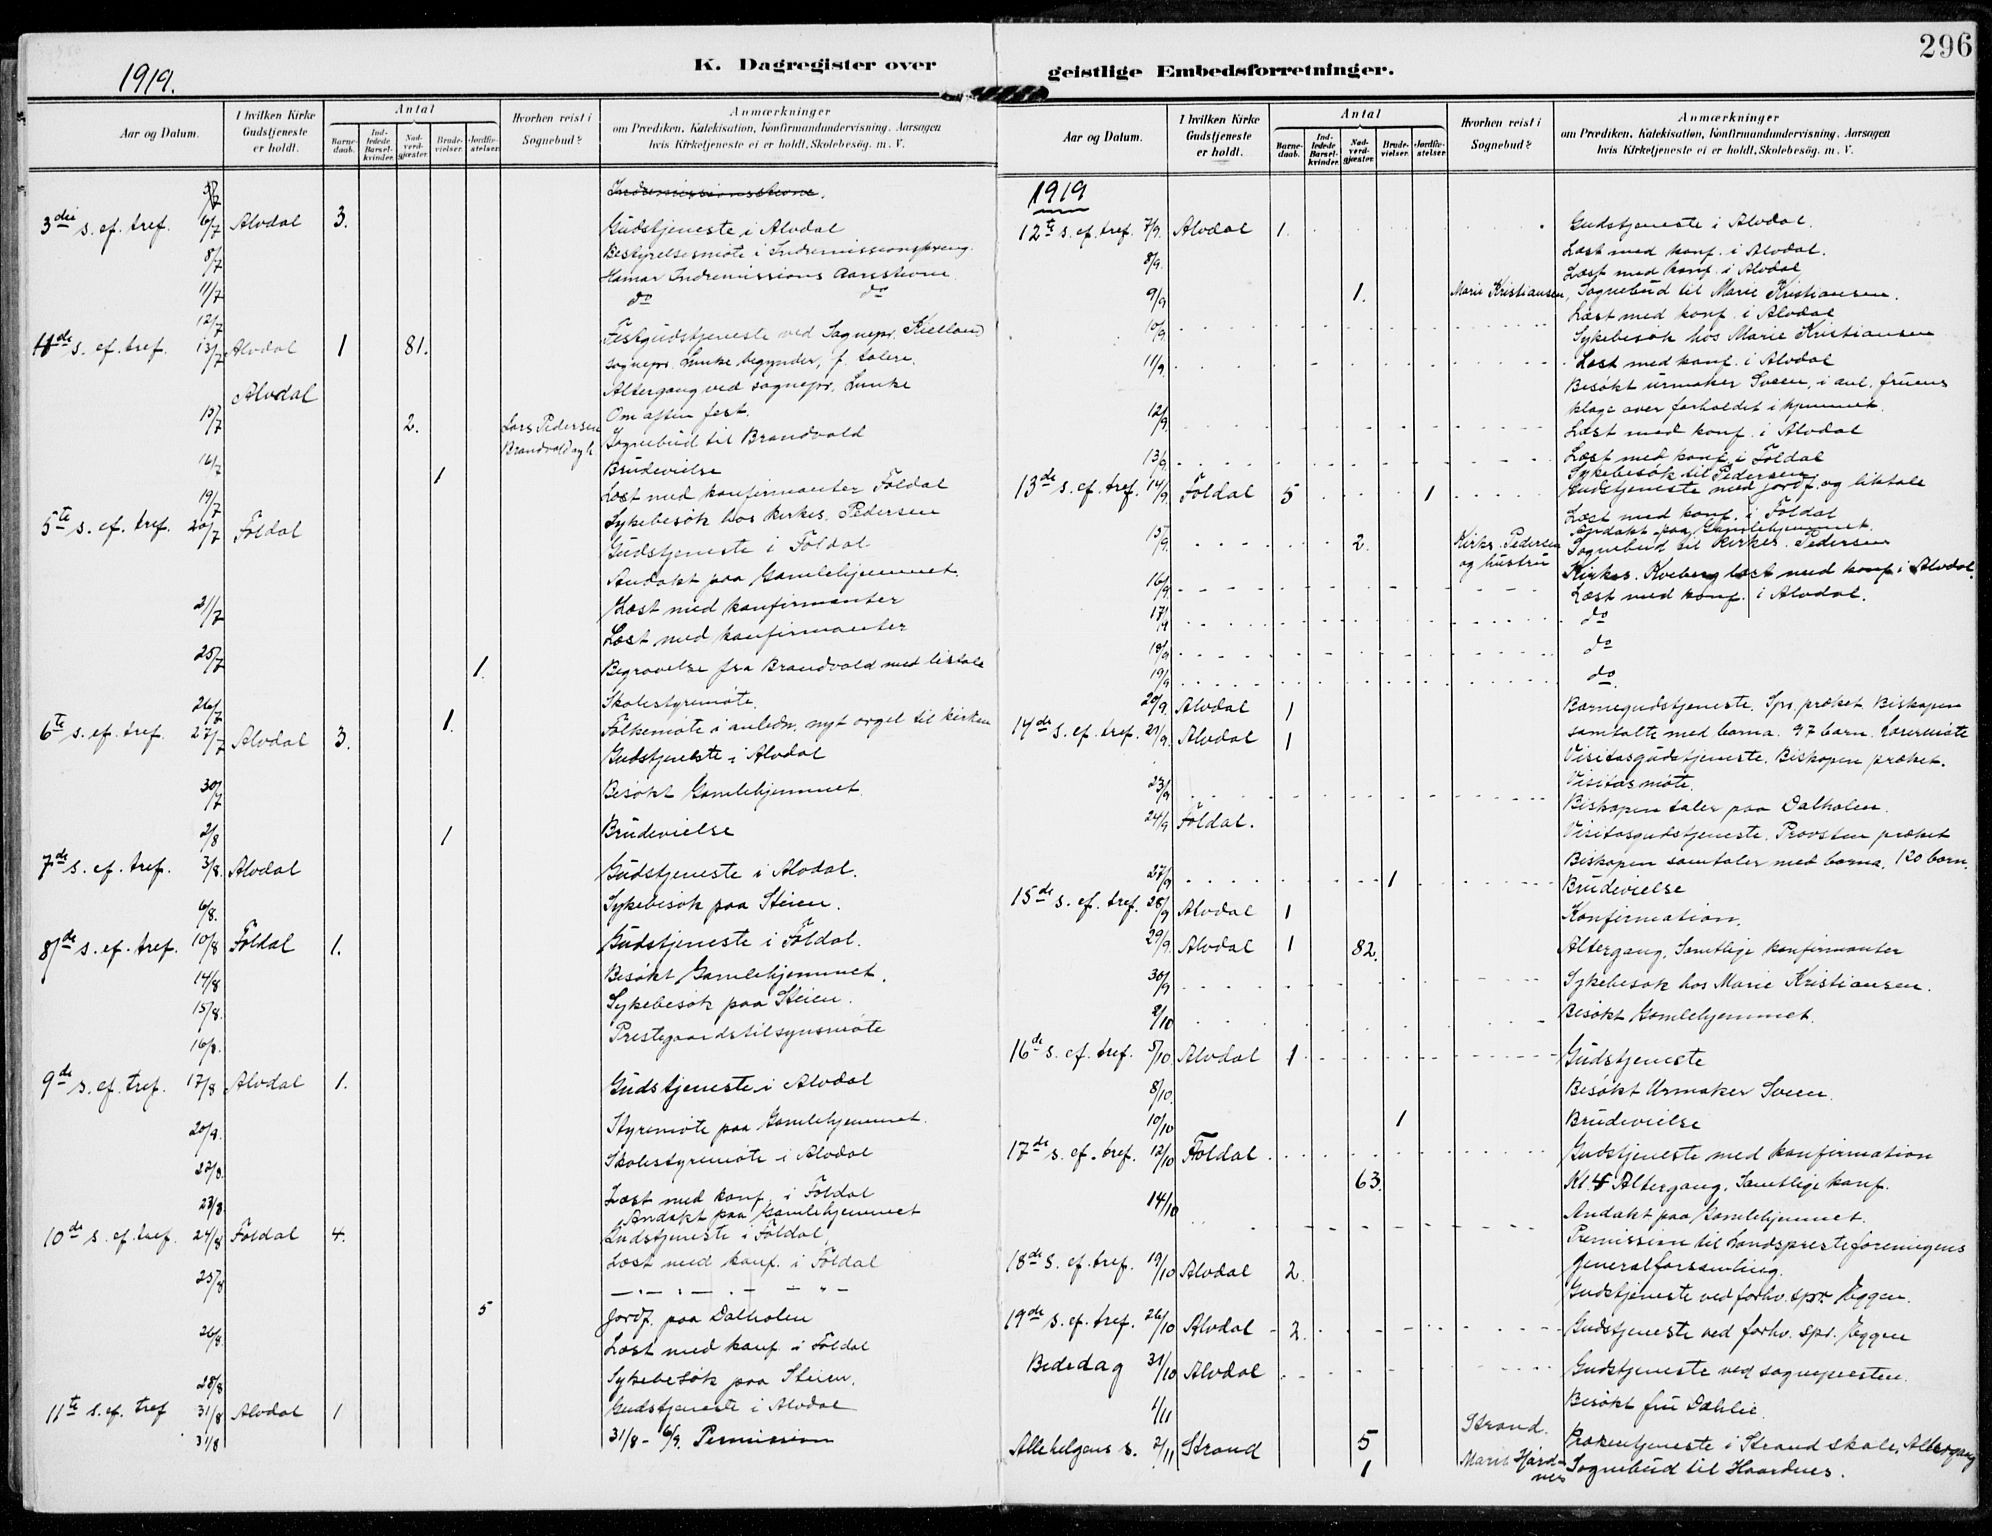 296
1919.
K. Dagregister over
geistlige Embedsforretninger.
Aar og Datum.
I hvilken Kirke Gudstjeneste er holdt.
Antal
Barnedaab.
Indledede Barselkvinder.
Nadverdgjæster.
Brudevielser.
Jordfæstelser.
Hvorhen reist i Sognebud?
Anmærkninger
om Prædiken, Katekisation, Konfirmandundervisning, Aarsagen
hvis Kirketjeneste ei er holdt, Skolebesøg. m. V.
Indremissionsstevne.
3die s. ef. tref. 6/7 Alvdal 3. Gudstjeneste i Alvdal
8/7 Bestyrelsesmøte i Indremissionsforeng.
11/7 Hamar Indremissions Aarsstevne
do do
12/7
4de s. ef. tref. 13/7 Alvdal 1 81. Festgudstjeneste ved Sognepr. Kielland
sognepr. Lunke begynder, f. talere.
Alvdal Altergang ved sognepr. Lunke
Om aften fest.
15/7 2. Lars Pedersen Sognebud til Brandvold
Brandvold og h.
16/7 1 Brudevielse
19/7 Læst med konfirmanter Foldal
Sykebesøk hos kirkes. Pedersen
5te s. ef. tref. 20/7 Foldal Gudstjeneste i Foldal
Andakt paa Gamlehjemmet.
21/7 Læst med konfirmanter
Læst med konfirmanter
25/7 1. Begravelse fra Brandvold med liktale
26/7 Skolestyremøte.
1. Folkemøte i anledn. nyt orgel til kirken
6te s. ef. tref. 27/7 Alvdal 3. Gudstjeneste i Alvdal
30/7 Besøkt Gamlehjemmet.
2/8 1 Brudevielse
7de s. ef. tref. 3/8 Alvdal Gudstjeneste i Alvdal.
6/8. Sykebesøk paa Steien.
8de s. ef. tref. 10/8 Foldal 1. Gudstjeneste i Foldal.
14/8 Besøkt Gamlehjemmet.
15/8. Sykebesøk paa Steien.
16/8. Prestegaardstilsynsmøte
9de s. ef. tref. 17/8 Alvdal 1. Gudstjeneste i Alvdal
20/8. Styremøte paa Gamlehjemmet.
22/8. Skolestyremøte i Alvdal
23/8 Læst med konf. i Foldal
Andakt paa Gamlehjemmet
10de s. ef. tref. 24/8 Foldal 4. Gudstjeneste i Foldal,
25/8 Læst med konf. i Foldal
— „ — „ — „ —
5 Jordf. paa Dalholen
26/8 Læst med konf. i Foldal
28/8 Sykebesøk paa Steien.
11te s. ef. tref 31/8 Alvdal 1 Gudstjeneste i Alvdal
31/8 31/8 - 6/9. Permission
Aar og Datum.
I hvilken Kirke Gudstjeneste er holdt.
Antal
Barnedaab.
Indledede Barselkvinder.
Nadverdgjæster.
Brudevielser.
Jordfæstelser
Hvorhen reist i Sognebud?
Anmærkninger
om Prædiken, Katekisation, Konfirmandundervisning, Aarsagen
hvis Kirketjeneste ei er holdt, Skolebesøg. m. V.
1919
12te s. ef. tref. 7/9. Alvdal 1. Gudstjeneste i Alvdal.
8/9. Læst med konf. i Alvdal.
Læst med konf. i Alvdal
9/9 1. Marie Kristiansen, Sognebud til Marie Kristiansen.
Læst med konf. i Alvdal
10/9 Sykebesøk hos Marie Kristiansen
11/9 Læst med konf. i Alvdal
Besøkt urmaker Sveen, i anl. fruens
klage over forholdet i hjemmet.
12/9 Læst med konf. i Alvdal
13/9 Læst med konf. i Foldal
Sykebesøk til Pedersen
13de s. ef. tref. 14/9 Foldal 5 1 Gudstjeneste med jordf. og liktale
Læst med konf. i Foldal
Andakt paa Gamlehjemmet.
15/9 2. Kirks. Pedersen Sognebud til kirkes. Pedersen
og hustru
16/9 Kirkes. Kveberg læst med konf. i Alvdal.
Læst med konf. i Alvdal.
17/9 do
18/9 do
19/9 do
20/9. Alvdal 1 Barnegudstjeneste. Spr. præket. Biskopen
samtalte med barna. 97 barn. Lærermøte
14de s. ef. tref. 21/9. Alvdal 1 Visitasgudstjeneste. Biskopen præket.
Visitasmøte.
23/9 Biskopen taler paa Dalholen.
24/9 Foldal. Visitasgudstjeneste. Provsten præket
Biskopen samtaler med barna. 120 barn.
27/9 1 Brudevielse
15de s. ef. tref. 28/9 Alvdal 1 Konfirmation.
29/9. Alvdal 1 82. Altergang. Samtlige konfirmanter
30/9 Sykebesøk hos Marie Kristiansen.
2/10 Besøkt Gamlehjemmet.
16de s. ef. tref. 5/10 Alvdal 1 Gudstjeneste
8/10. Besøkt Urmaker Sveen.
10/10 1 Brudevielse
17de s. ef. tref. 12/10 Foldal Gudstjeneste med konfirmation
63. Kl. 4 Altergang. Samtlige konf.
14/10 Andakt paa Gamlehjemmet.
Permission til Landspresteforeningens
generalforsamling.
18de s. ef. tref. 19/10 Alvdal 2. Gudstjeneste ved forhv. spr. Eggen.
19de s. ef. tref. 26/10 Alvdal 2. Gudstjeneste ved forhv. spr. Eggen
Bededag 31/10 Alvdal Gudstjeneste ved sognepresten.
1/11 Besøkt fru Dæhlie.
Allehelgens s. 2/11 Strand 5 Strand. Prækentjeneste i Strand skole. Altergang
1 Marit Sognebud til Haardnes.